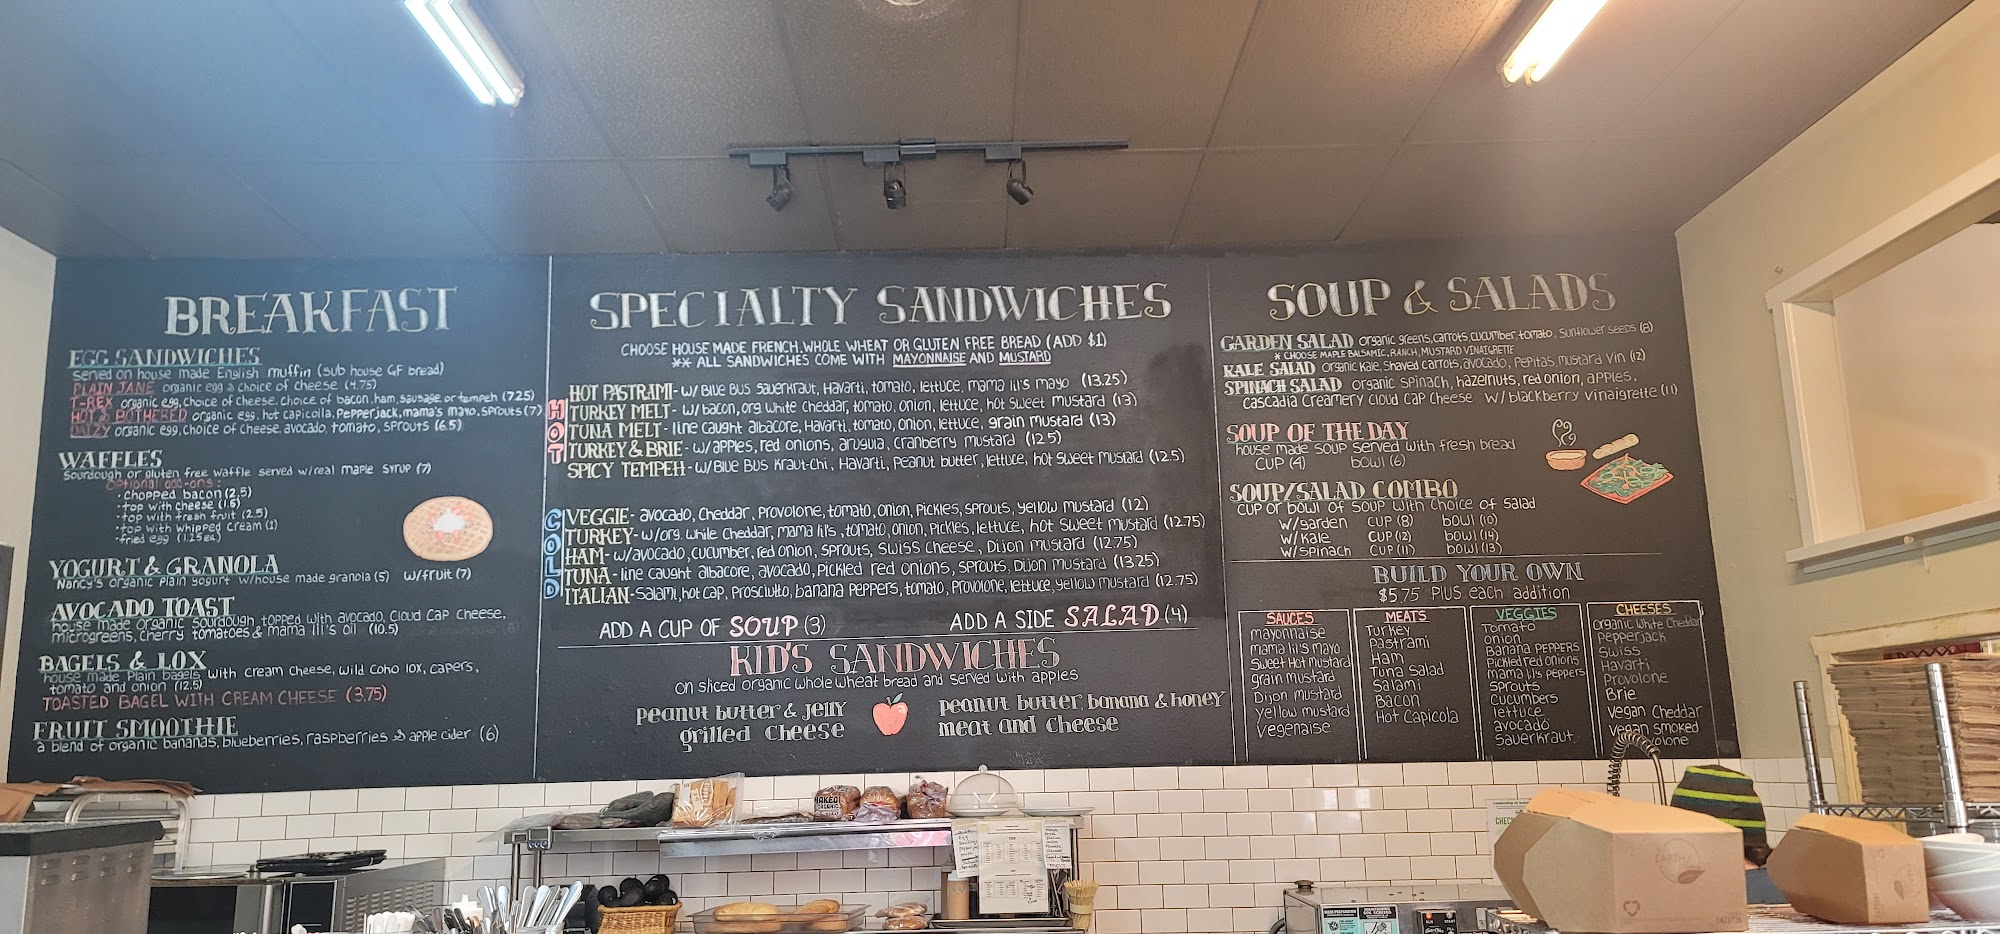 BREAKFAST
EGG SANDWICHES
served on house made English muffin (sub house GF bread)
PLAIN JANE organic egg & choice of cheese (4.75)
T-REX organic egg, choice of cheese, choice of bacon, ham, sausage, or tempeh (7.25)
HOT & BOTHERED organic egg, hot capicolla, pepperjack, mama's mayo, sprouts (7)
DAIZY organic egg, choice of cheese, avocado, tomato, sprouts (6.5)
WAFFLES
sourdough or gluten free waffle served w/real maple syrup (7)
optional add-ons:
· chopped bacon (2.5)
· top with cheese (1.5)
· top with fresh fruit (2.5)
· top with whipped cream (1)
· fried egg (1.25 ea)
YOGURT & GRANOLA
Nancy's organic plain yogurt w/house made granola (5) w/fruit (7)
AVOCADO TOAST
house made organic sourdough, topped with avocado, cloud cap cheese,
microgreens, cherry tomatoes & mama lil's oil (10.5)
BAGELS & LOX
house made plain bagels with cream cheese, wild coho lox, capers,
tomato and onion (12.5)
TOASTED BAGEL WITH CREAM CHEESE (3.75)
FRUIT SMOOTHIE
a blend of organic bananas, blueberries, raspberries & apple cider (6)
SPECIALTY SANDWICHES
CHOOSE HOUSE MADE FRENCH, WHOLE WHEAT OR GLUTEN FREE BREAD (ADD $1)
** ALL SANDWICHES COME WITH MAYONNAISE AND MUSTARD
HOT
HOT PASTRAMI- w/ Blue Bus sauerkraut, Havarti, tomato, lettuce, mama lil's mayo (13.25)
TURKEY MELT- w/bacon, org. white cheddar, tomato, onion, lettuce, hot sweet mustard (13)
TUNA MELT- line caught albacore, Havarti, tomato, onion, lettuce, grain mustard (13)
TURKEY & BRIE- w/apples, red onions, arugula, cranberry mustard (12.5)
SPICY TEMPEH- w/Blue Bus Kraut-chi, Havarti, peanut butter, lettuce, hot sweet mustard (12.5)
COLD
VEGGIE- avocado, cheddar, provolone, tomato, onion, pickles, sprouts, yellow mustard (12)
TURKEY- w/org. white cheddar, mama lil's, tomato, onion, pickles, lettuce, hot sweet mustard (12.75)
HAM- w/avocado, cucumber, red onion, sprouts, swiss cheese, Dijon mustard (12.75)
TUNA- line caught albacore, avocado, pickled red onions, sprouts, Dijon mustard (13.25)
ITALIAN- salami, hot cap, prosciutto, banana peppers, tomato, provolone, lettuce, yellow mustard (12.75)
ADD A CUP OF SOUP (3) ADD A SIDE SALAD (4)
KID'S SANDWICHES
on sliced organic whole wheat bread and served with apples
peanut butter & jelly
grilled cheese
peanut butter, banana & honey
meat and cheese
SOUP & SALADS
GARDEN SALAD organic greens, carrots, cucumber, tomato, sunflower seeds (8)
* CHOOSE MAPLE BALSAMIC, RANCH, MUSTARD VINAIGRETTE
KALE SALAD organic kale, shaved carrots, avocado, pepitas, mustard vin (12)
SPINACH SALAD organic spinach, hazelnuts, red onion, apples,
cascadia creamery cloud cap cheese w/ blackberry vinaigrette (11)
SOUP OF THE DAY
house made soup served with fresh bread
CUP (4) bowl (6)
SOUP/SALAD COMBO
cup or bowl of soup with choice of salad
w/garden CUP (8) bowl (10)
w/kale CUP (12) bowl (14)
w/spinach CUP (11) bowl (13)
BUILD YOUR OWN
$5.75 PLUS each addition
SAUCES
mayonnaise
mama lil's mayo
sweet Hot mustard
grain mustard
Dijon mustard
yellow mustard
vegenaise
MEATS
Turkey
Pastrami
Ham
Tuna Salad
Salami
Bacon
Hot Capicola
VEGGIES
Tomato
onion
Banana PEPPERS
Pickled red onions
mama lil's peppers
sprouts
cucumbers
lettuce
avocado
sauerkraut
CHEESES
organic white cheddar
Pepperjack
Swiss
Havarti
Provolone
Brie
Vegan Cheddar
Vegan smoked
NAKED
ORGANIC
EARTH